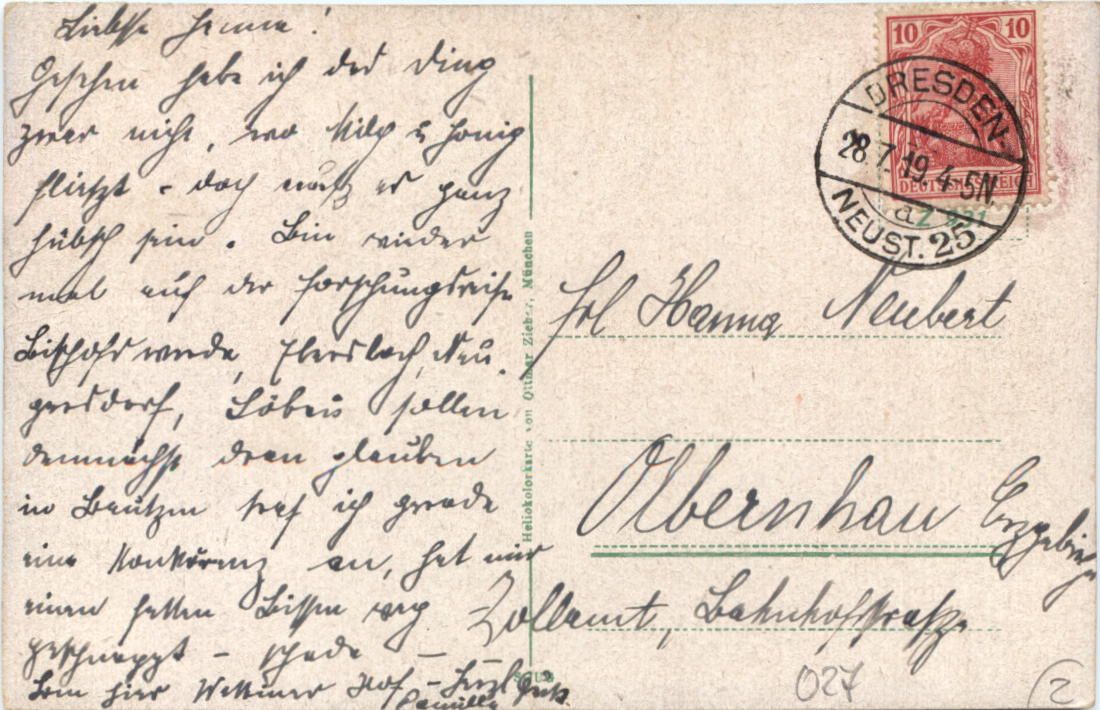 Liebste Hanna!
Gesehen habe ich das Ding
zwar nicht, wo Milch u Honig
fließt - doch muß es ganz
hübsch sein. Bin wieder
mal auf der Forschungsreise
Bischofswerda, Ebersbach, Neu-
gersdorf, Löbau sollen
demnächst dran glauben
in Bautzen traf ich gerade
eine Konkurrenz an, hat mir
einen fetten Bissen weg
geschnappt - schade -
hier Wettiner Hof - Herzl
10 10
DEUTSCHES REICH
DRESDEN-
28.7.19.4-5N.
a
NEUST. 25
Frl Hanna Neubert
Olbernhau Erzgebirge
Zollamt, Bahnhofstraße
Heliokolorkarte von Ottmar Zieher, München
027
2